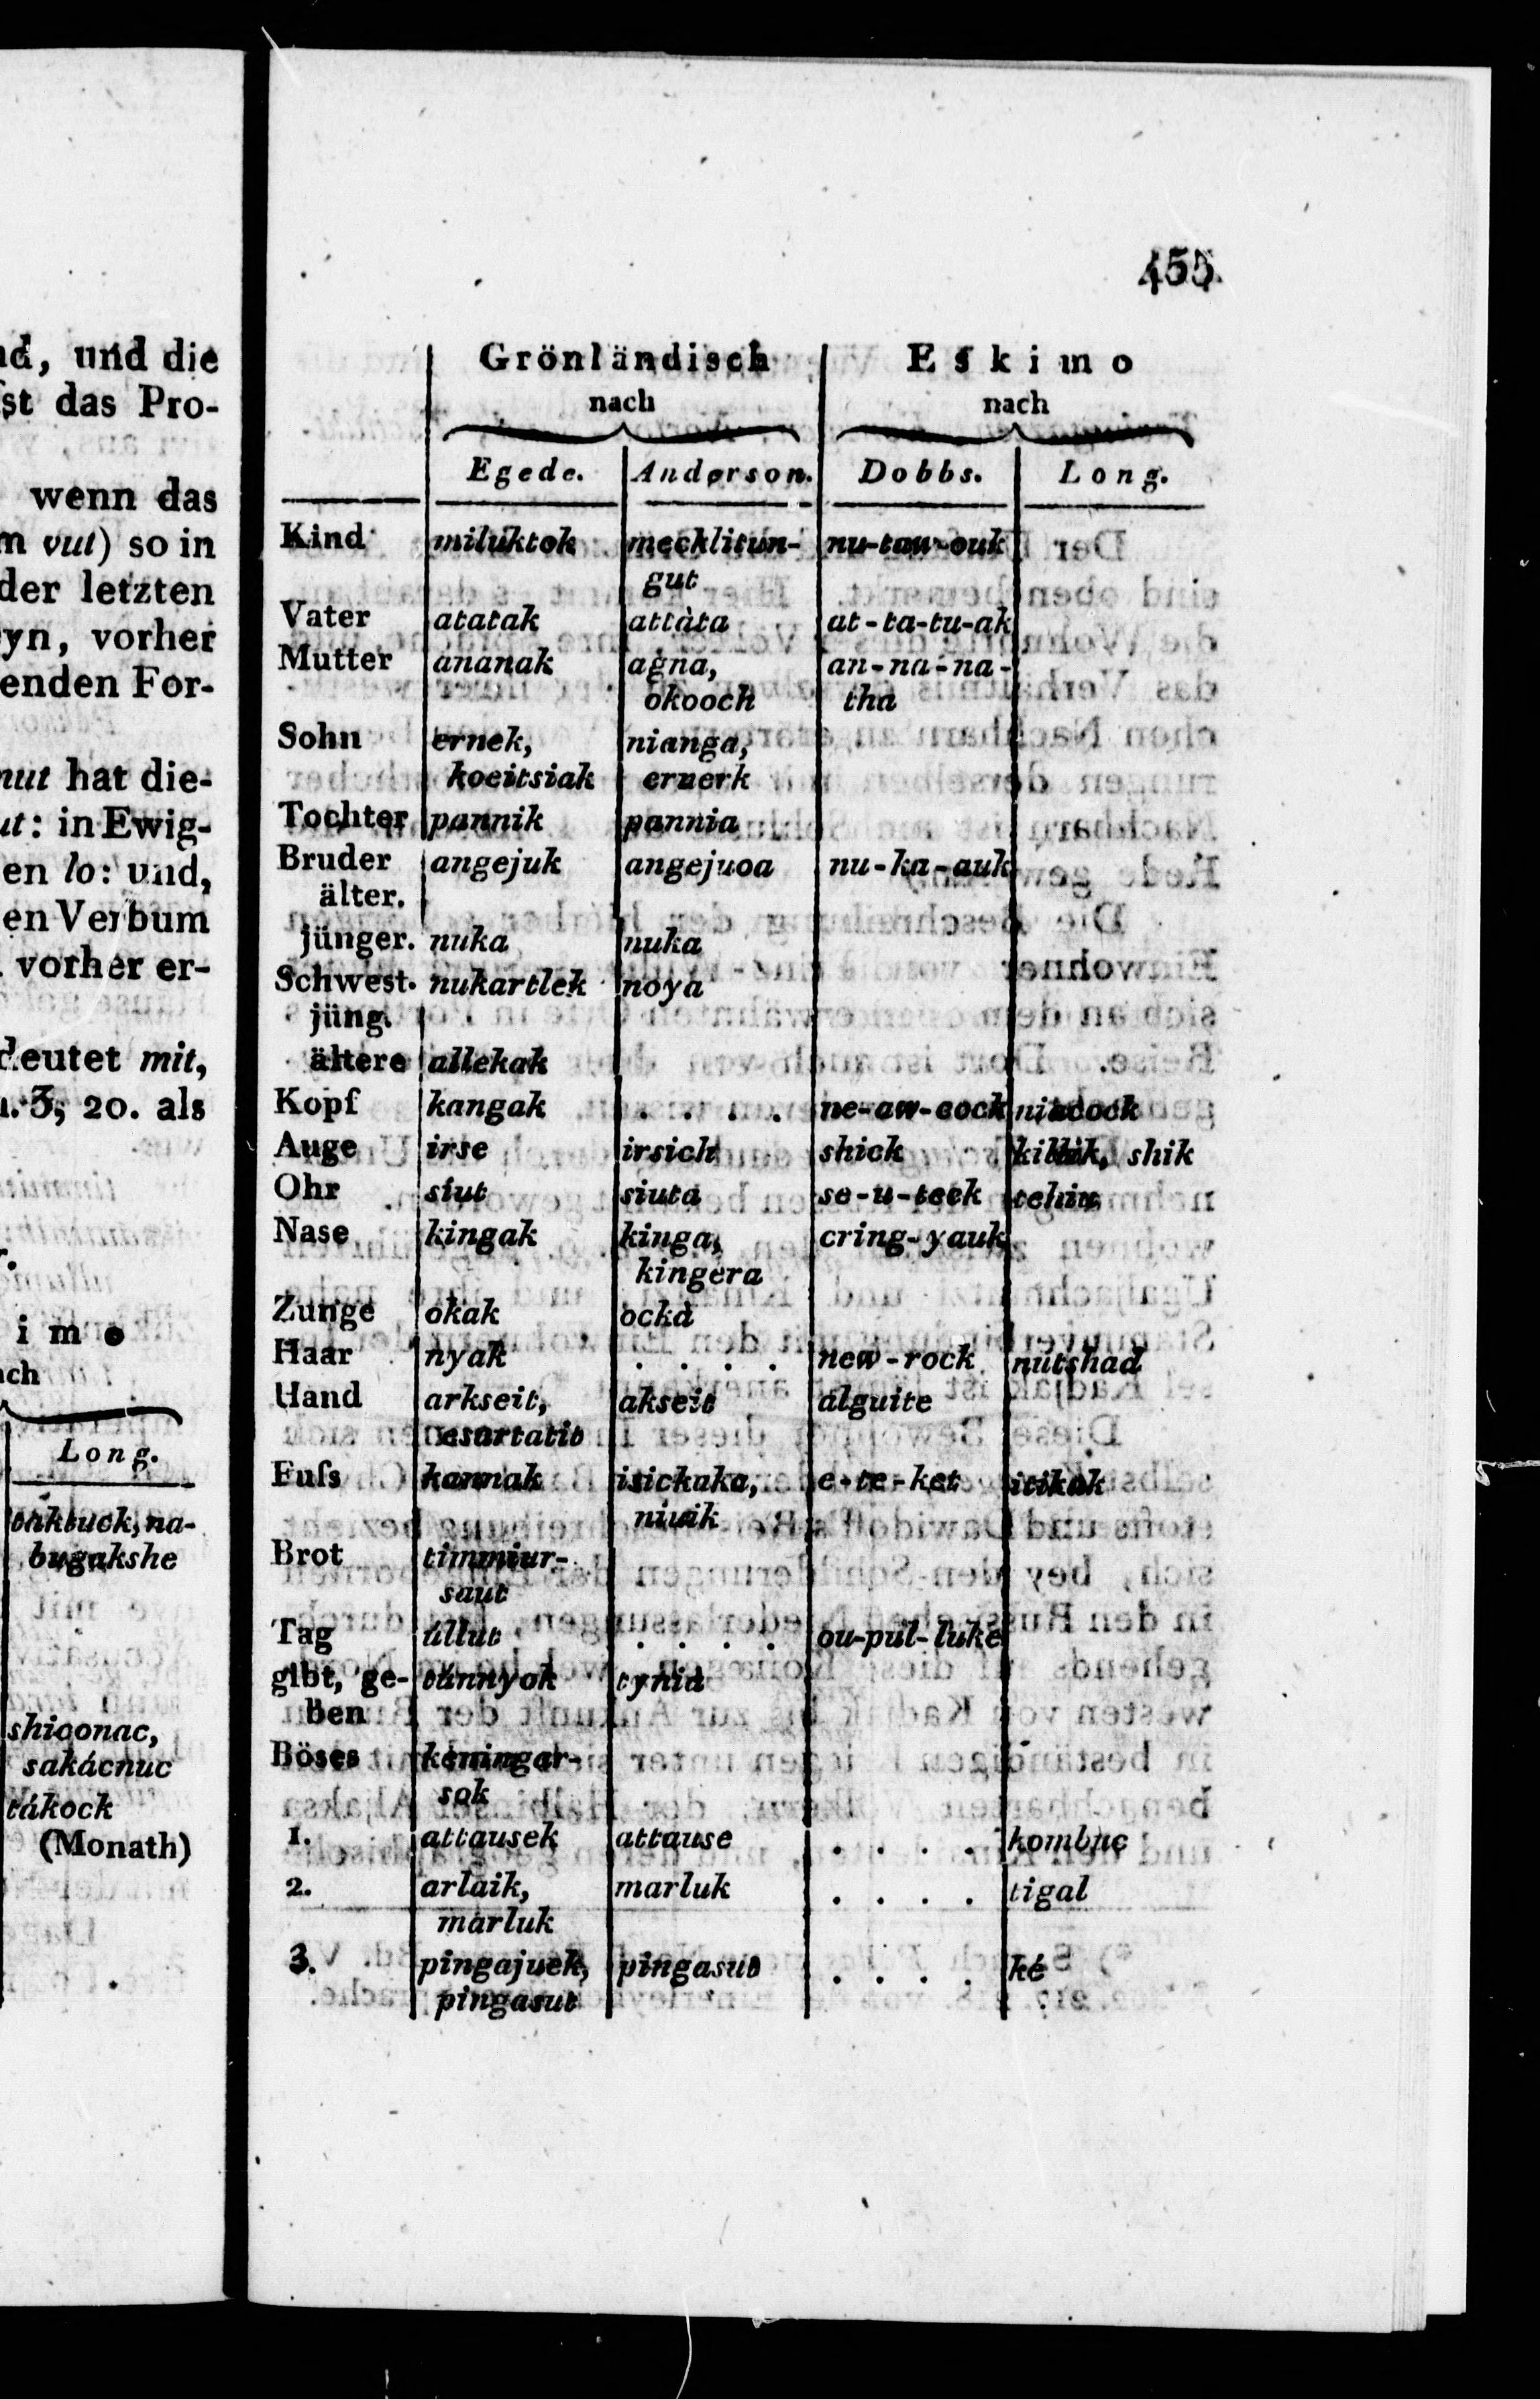 nd, und die
st das Pro-
wenn das
m vut) so in
der letzten
yn, vorher
enden For-
nut hat die-
ut: in Ewig-
en lo: und,
en Verbum
vorher er-
deutet mit,
1. 3, 20. als
i m o
ach
Long.
bugakshe
shiconac,
sakácnuc
tákock
(Monath)
455
Grönländisch Eskimo
nach nach
Egede. Anderson. Dobbs. Long.
Kind miluktok mecklitun- nu-taw-ouk
gut
Vater atatak attàta at-ta-tu-ak
Mutter ananak agna, an-na-na-
okooch tha
Sohn ernek, nianga,
koeitsiak ernerk
Tochter pannik pannia
Bruder angejuk angejuoa nu-ka-auk
älter.
jünger. nuka nuka
Schwest. nukartlek noya
jüng.
ältere allekak
Kopf kangak . . . . ne-aw-cock niacock
Auge irse irsich shick killik, shik
Ohr siut siuta se-u-teek
Nase kingak kinga, cring-yauk
kingera
Zunge okak ocka
Haar nyak . . . . new-rock nutshad
Hand arkseit, akseit alguite
Fuſs kannak isickaka, e-te-ket itikak
niuik
Brot timmiur-
saut
Tag ullut . . . . ou-pul-luke
gibt, ge- tunnyok tynia
ben
Böses
sok
1. attausek attause . . . . kombuc
2. arlaik, marluk . . . . tigal
marluk
3. pingajuek, pingasut . . . . ké
pingasut